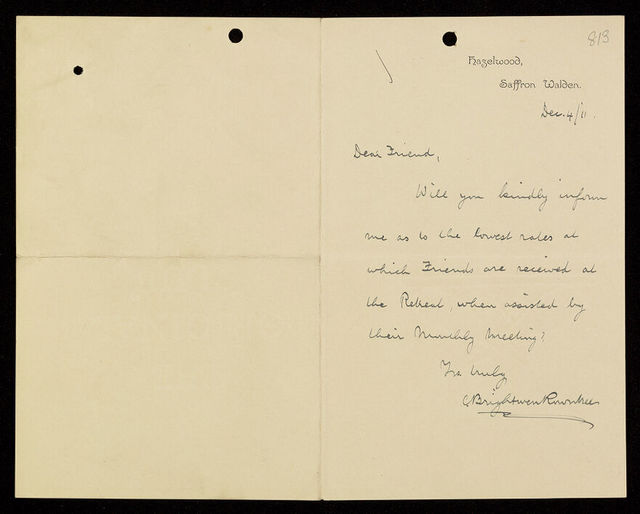 813
Hazelwood,
Saffron Walden.
Dec. 4/11.
Dear Friend,
Will you kindly inform
me as to the lowest rates at
which Friends are received at
the Retreat, when assisted by
their Monthly Meeting?
Yrs truly
C Brightwen Rowntree